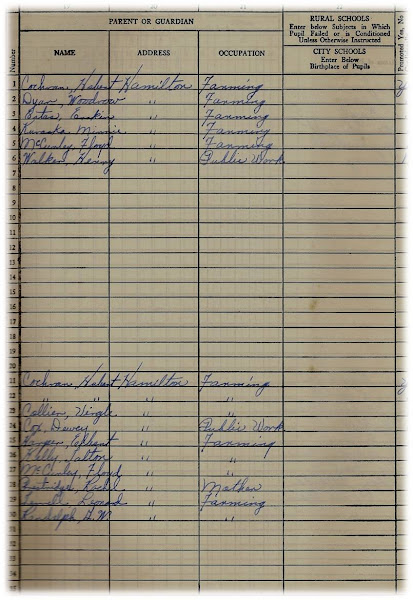 PARENT OR GUARDIAN
RURAL SCHOOLS
Enter below Subjects in Which
Pupil Failed or is Conditioned
Unless Otherwise Instructed
CITY SCHOOLS
Enter Below
Birthplace of Pupils
Number NAME ADDRESS OCCUPATION Promoted Yes, No
1 Cochran, Hubert Hamilton Farming
2 Dyar, Woodrow " Farming
3 Estes, " Farming
4 Minnie " Farming
5 McCurley, Floyd " Farming
6 Walker, Henry " Public Work
7
8
9
10
11
12
13
14
15
16
17
18
19
20
21 Cochran, Hubert Hamilton Farming
" " " "
23 Collier, Virgle " "
24 Cox, Dewey " Public Work
25 Harper, " Farming
26 Kelly, " "
27 McCurley, Floyd " "
28 " Mother
29 " Farming
30 Randolph, G.W. " "